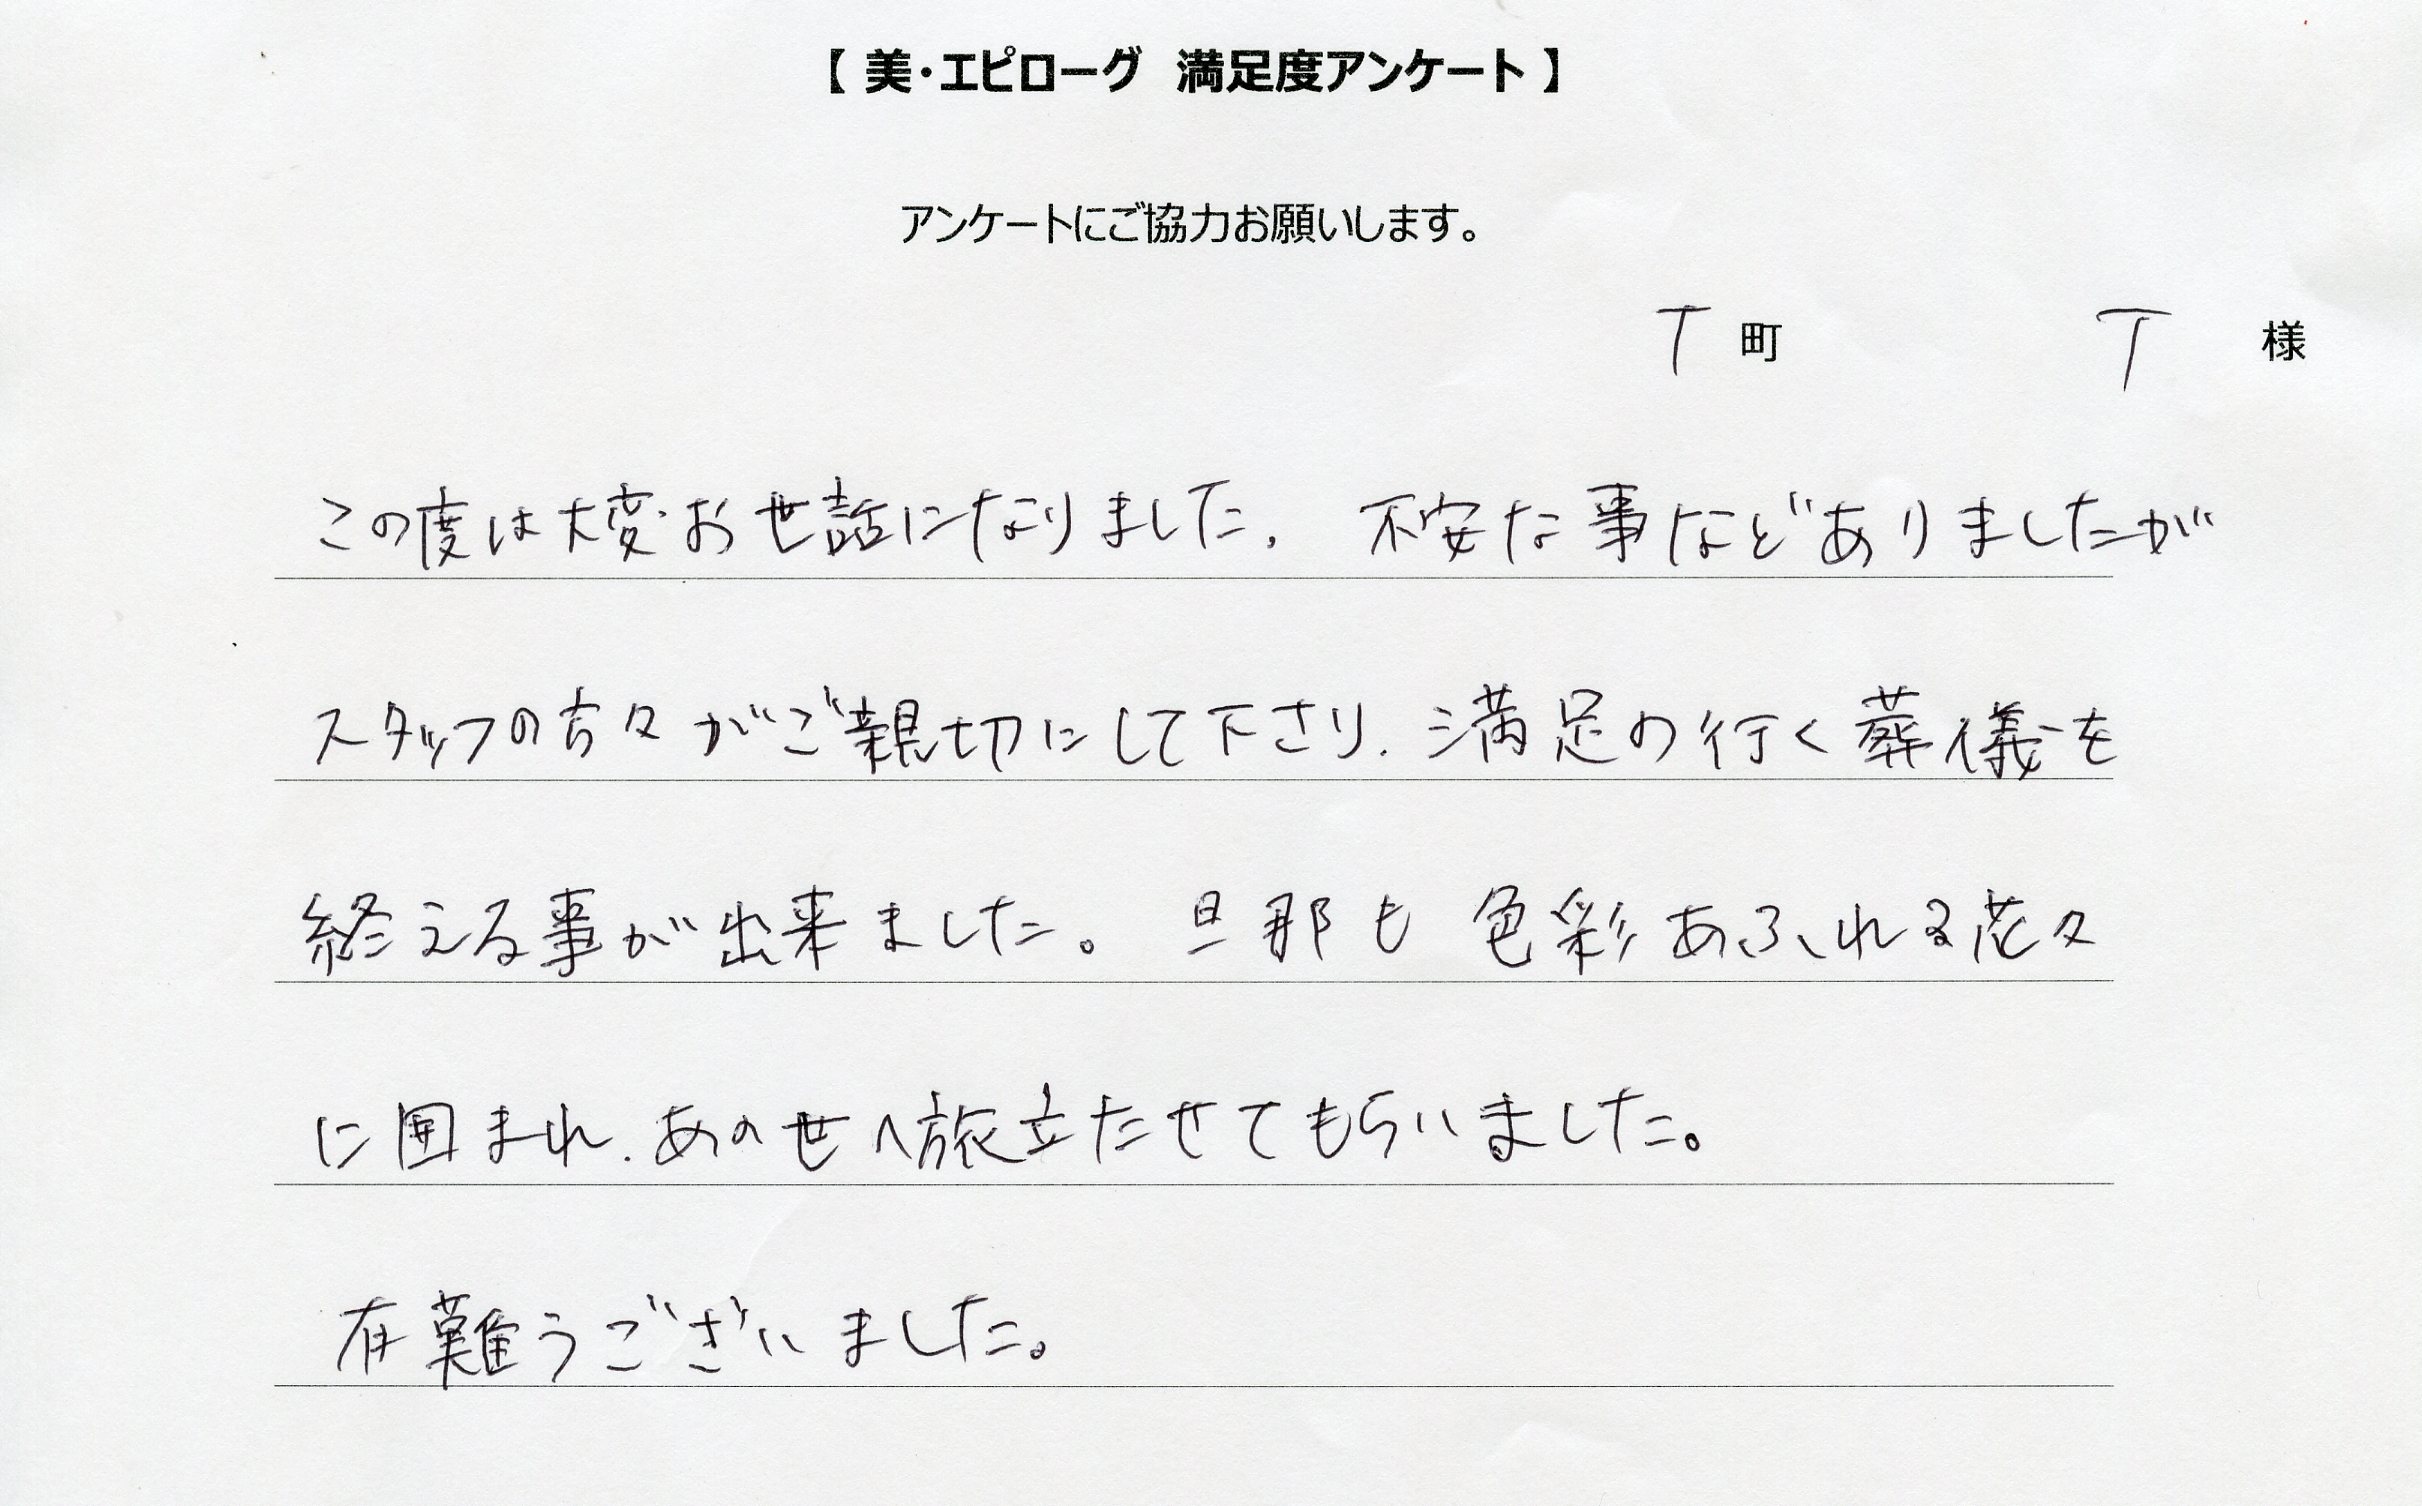 【 美・エピローグ　満足度アンケート 】
アンケートにご協力お願いします。
T 町　T 様
この度は大変お世話になりました。 不安な事などありましたが
スタッフの方々がご親切にして下さり、満足の行く葬儀を
終える事が出来ました。 旦那も 色彩あふれる花々
に囲まれ、あの世へ旅立たせてもらいました。
有難うございました。